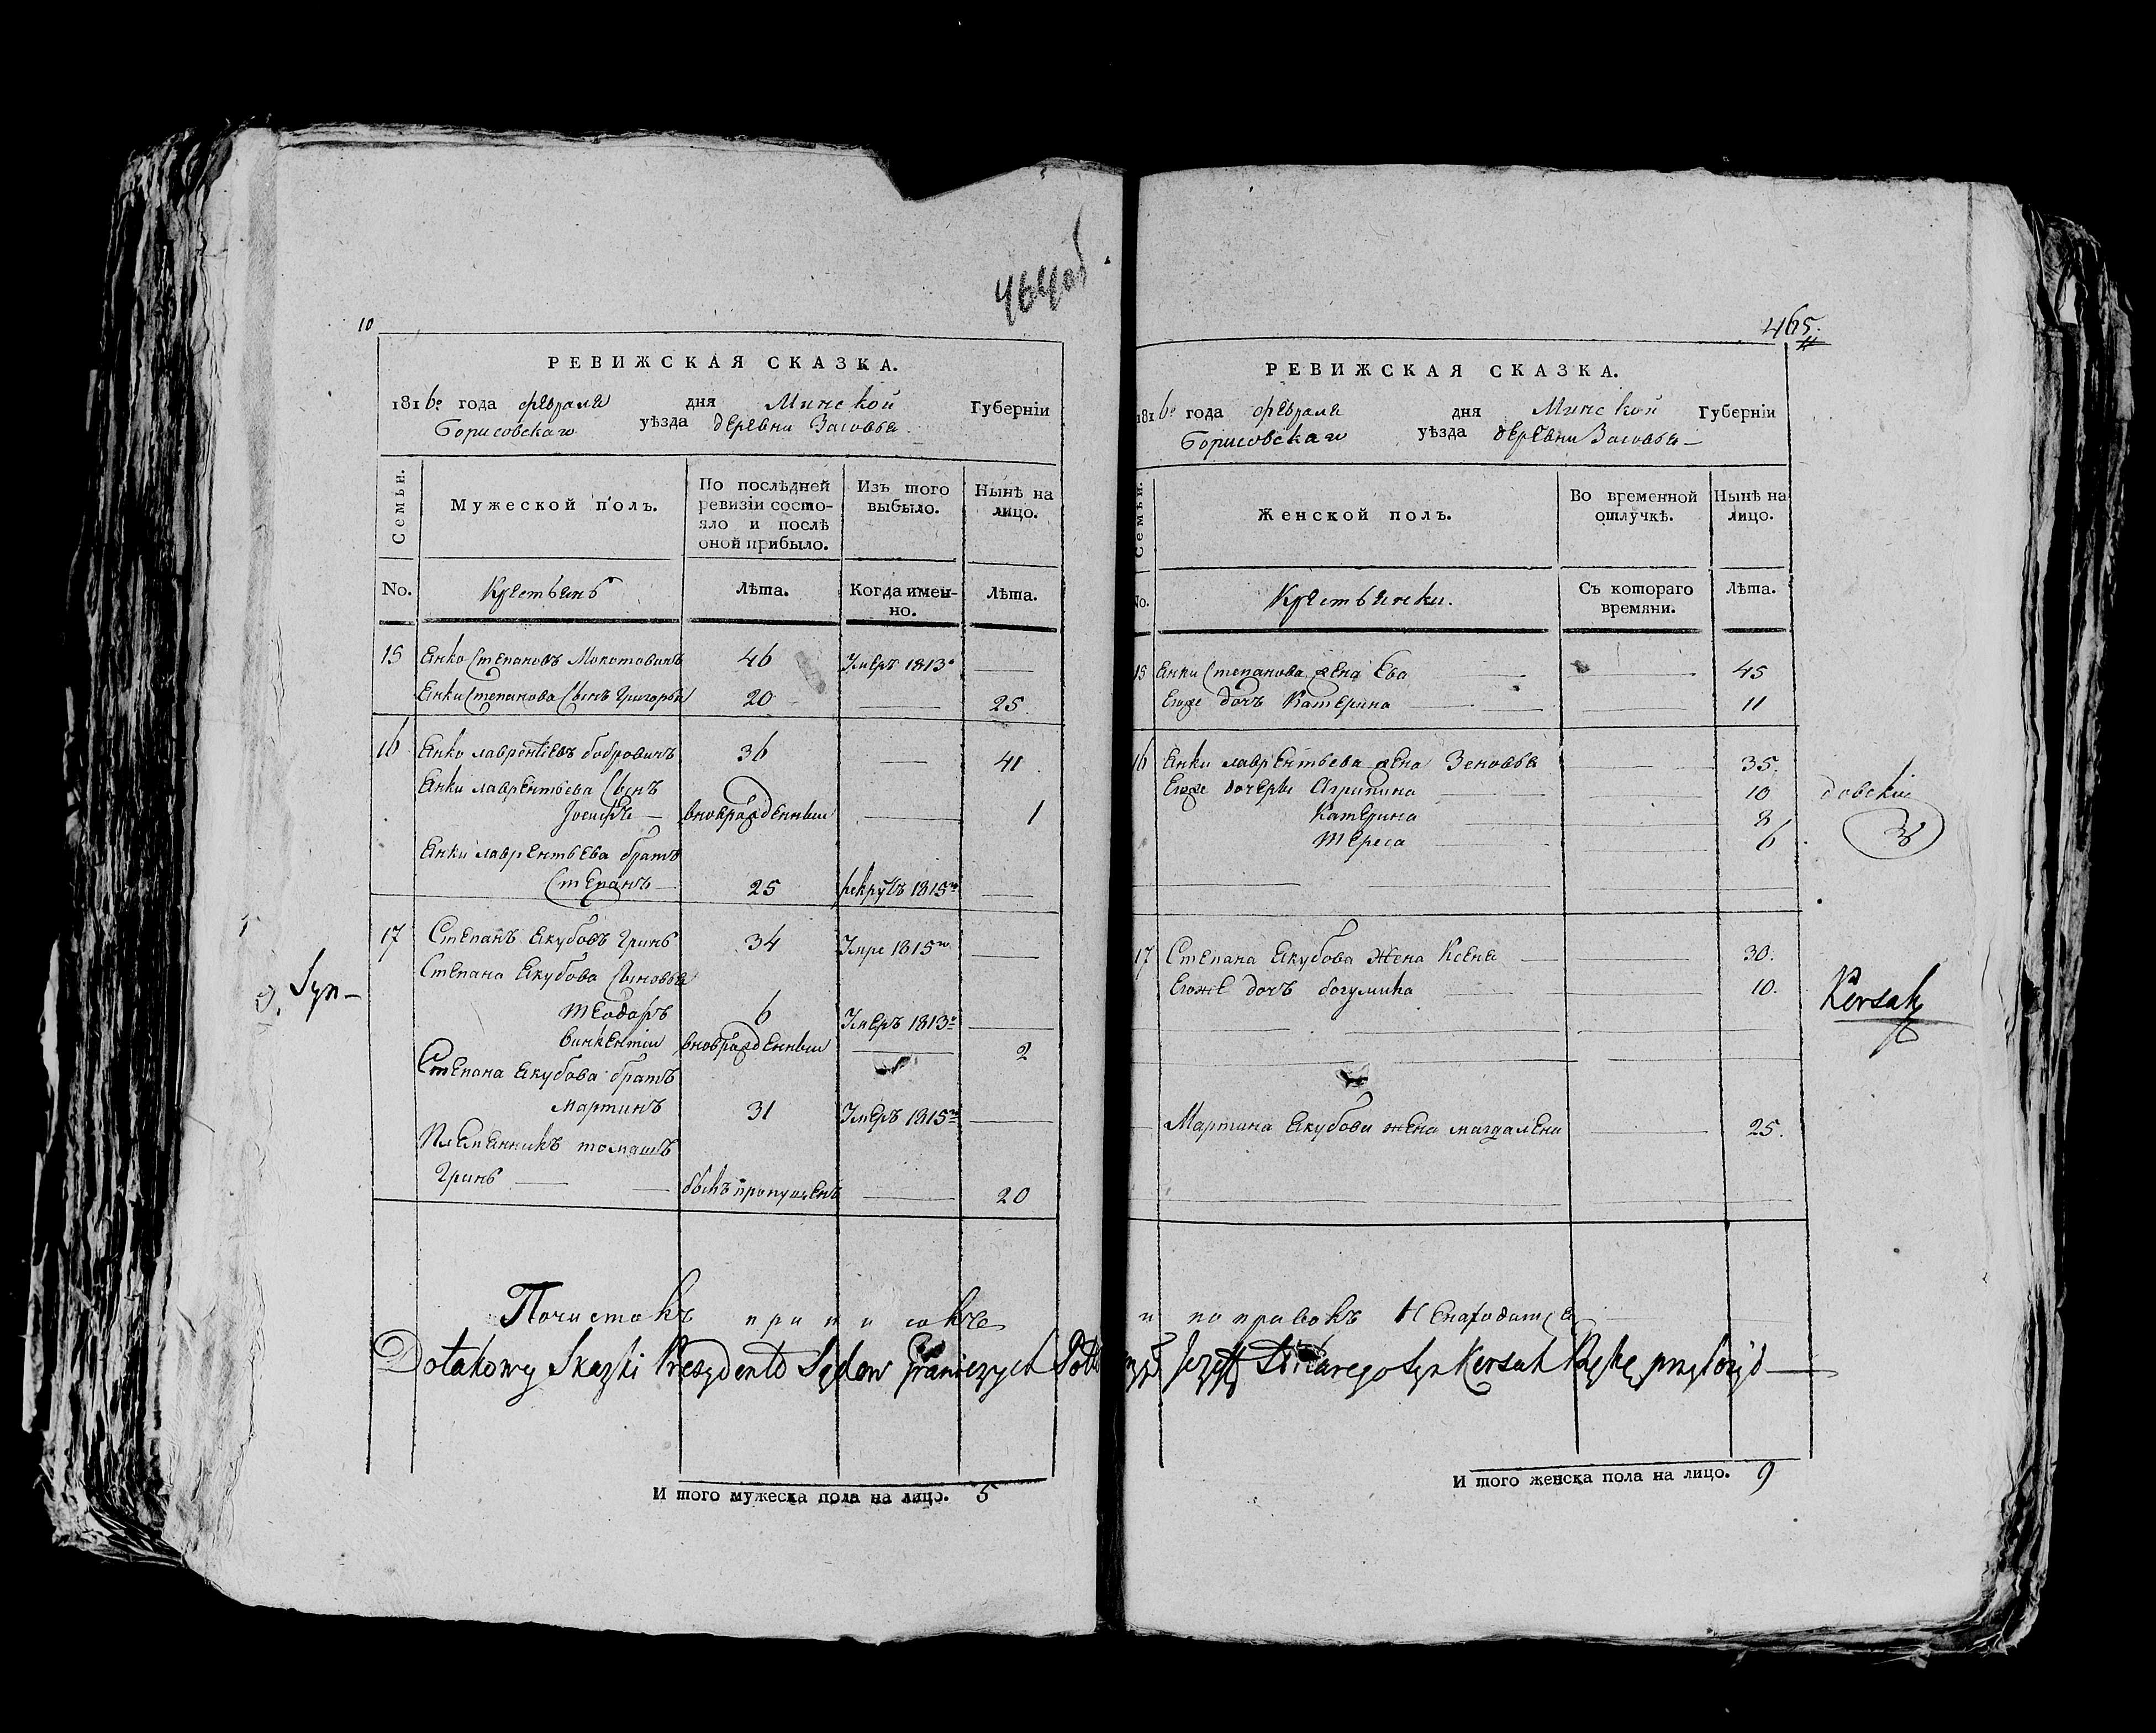 464об
10
РЕВИЖСКАЯ СКАЗКА.
1816го года февраля дня Минской Губернїи
Борисовскаго уѣзда деревни Засовья
Семьи.
Мужеской полъ.
По послѣдней ревизїи состояло и послѣ оной прибыло.
Изъ того выбыло.
Нынѣ на лицо.
No. Крестьянъ Лѣта. Когда именно. Лѣта.
15 Янко Степановъ 46 Умеръ 1813о
Янки Степанова Сынъ Григорый 20 25
16 Янко лаврентіевъ бобровичъ 36 41
Янки лаврентьева Сынъ
Іосифъ вноврожденный 1
Янки лаврентьева братъ
Степанъ 25 рекрутъ 1815го
17 Степанъ Якубовъ Гринь 34 Умре 1815го
Степана Якубова Сыновья
теодоръ 6 Умеръ 1813о
винкентіи вноврожденныи 2
Степана Якубова братъ
мартинъ 31 Умеръ 1815го
Племянникъ томашъ
Гринь былъ пропущенъ 20
Syn
И того мужеска пола на лицо. 5
465.
11
РЕВИЖСКАЯ СКАЗКА.
1816го года февраля дня Минской Губернїи
Борисовскаго уѣзда деревни Засовья
Семьи.
Женской полъ.
Во временной отлучкѣ.
Нынѣ на лицо.
No. Крестьянки. Съ котораго времяни. Лѣта.
15 Янки Степанова жена Ева 45
Егоже дочъ Катерина 11
16 Янки лаврентьева жена Зеновья 35.
Егоже дочери Агрипина 10
Катерина 8
тереса 6
17 Степана Якубова Жена Ксеня 30.
Егоже дочъ богумила 10.
Мартина Якубова жена магдалена 25.
довскіи
Kersak
Почистокъ приписокъ и поправокъ Ненаходится
Do takowey Skazki Prezydent Sądow Granicznych Józeff syn Kersak Rękę przyłożył
И того женска пола на лицо. 9